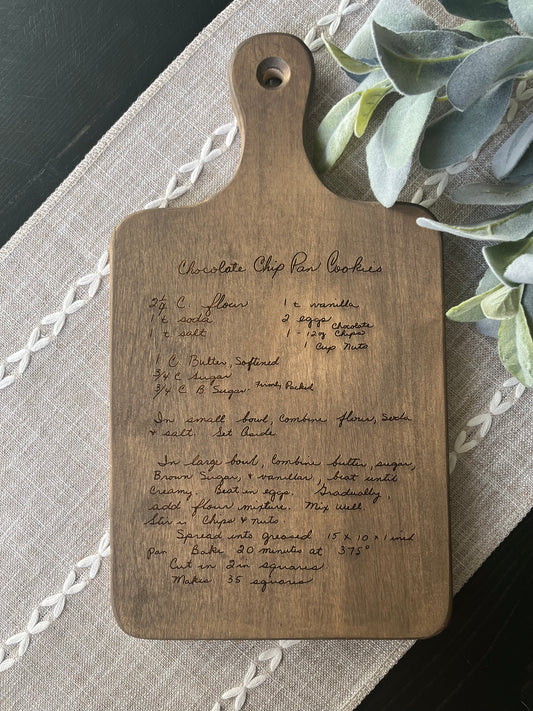 Chocolate Chip Pan Cookies
2 1/4 C. flour
1 t soda
1 t salt
1 t vanilla
2 eggs
1 - 12oz Chocolate Chips
1 Cup Nuts
1 C Butter, Softened
3/4 C Sugar
3/4 C B. Sugar Firmly Packed
In small bowl, combine flour, soda
& salt. Set aside
In large bowl, combine butter, sugar,
Brown Sugar, & vanillar, beat until
Creamy. Beat in eggs. Gradually
add flour mixture. Mix well
Stir in Chips & nuts.
Spread into greased 15 x 10 x 1 inch
pan Bake 20 minutes at 375°
Cut in 2in squares
Makes 35 squares